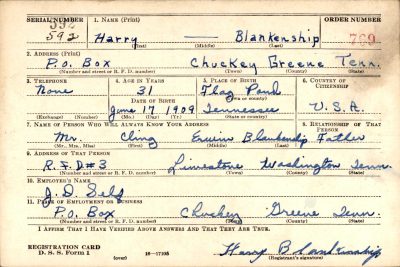 SERIAL NUMBER 1. NAME (Print) ORDER NUMBER
592 Harry — Blankenship 769
(First) (Middle) (Last)
2. ADDRESS (Print)
P.O. Box Chuckey Greene Tenn.
(Number and street or R. F. D. number) (Town) (County) (State)
3. TELEPHONE 4. AGE IN YEARS 5. PLACE OF BIRTH 6. COUNTRY OF CITIZENSHIP
None 31 Flag Pond
DATE OF BIRTH (Town or county)
June 17 1909 Tennessee U.S.A.
(Exchange) (Number) (Mo.) (Day) (Yr.) (State or country)
7. NAME OF PERSON WHO WILL ALWAYS KNOW YOUR ADDRESS 8. RELATIONSHIP OF THAT PERSON
Mr. Cling Erwin Blankenship Father
(Mr., Mrs., Miss) (First) (Middle) (Last)
9. ADDRESS OF THAT PERSON
R.F.D#3 Limestone Washington Tenn.
(Number and street or R. F. D. number) (Town) (County) (State)
10. EMPLOYER'S NAME
J.D. Self
11. PLACE OF EMPLOYMENT OR BUSINESS
P.O. Box Chuckey Greene Tenn.
(Number and street or R. F. D. number) (Town) (County) (State)
I AFFIRM THAT I HAVE VERIFIED ABOVE ANSWERS AND THAT THEY ARE TRUE.
REGISTRATION CARD
D. S. S. Form 1 (over) 16—17105 Harry Blankenship
(Registrant's signature)